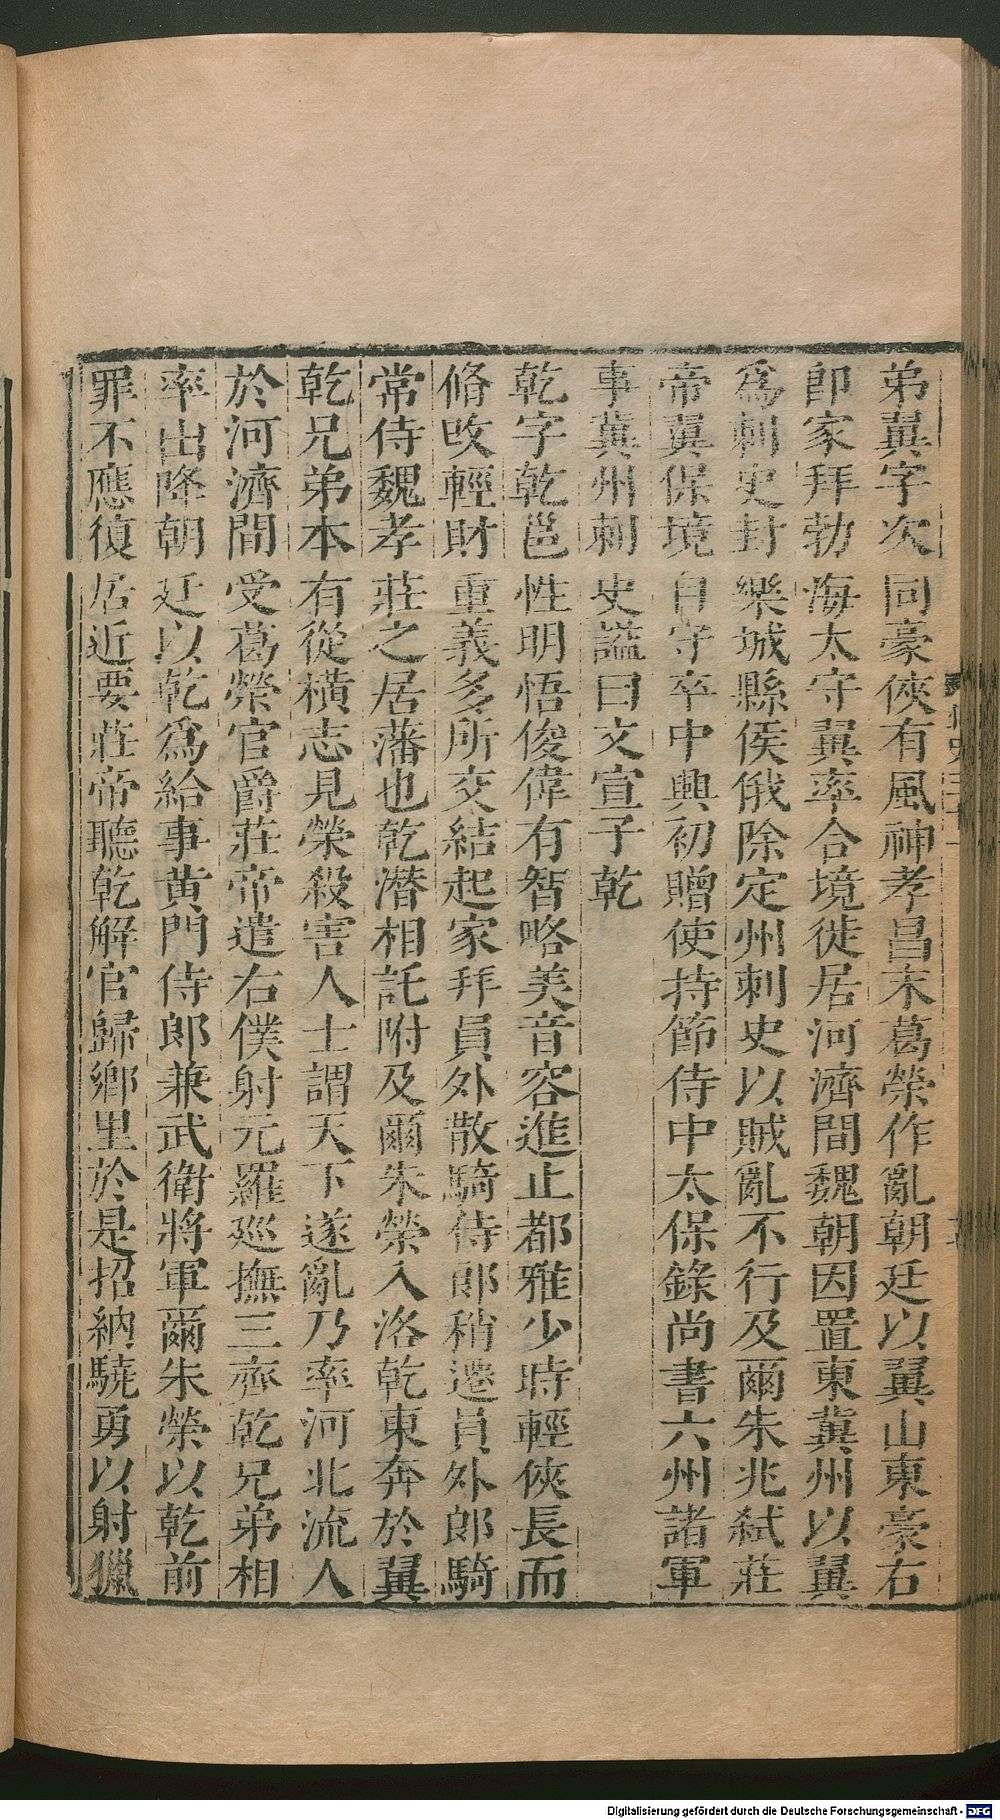 弟翼字次同豪俠有風神孝昌末葛榮作亂朝廷以翼山東豪右
即家拜勃海太守翼率合境徙居河濟間魏朝因置東冀州以翼
爲刺史封樂城縣侯俄除定州刺史以賊亂不行及爾朱兆弑莊
帝翼保境自守卒中興初贈使持節侍中太保錄尚書六州諸軍
事冀州刺史謚曰文宣子乾
乾字乾邕性明悟俊偉有智略美音容進止都雅少時輕俠長而
脩攺輕財重義多所交結起家拜員外散騎侍郎稍遷員外郎騎
常侍魏孝莊之居藩也乾潛相託附及爾朱榮入洛乾東奔於翼
乾兄弟本有從橫志見榮殺害人士謂天下遂亂乃率河北流人
於河濟間受葛榮官爵莊帝遣右僕射元羅廵撫三齊乾兄弟相
率出降朝廷以乾爲給事黄門侍郎兼武衛將軍爾朱榮以乾前
罪不應復居近要莊帝聽乾解官歸鄉里於是招納驍勇以射獵
Digitalisierung gefördert durch die Deutsche Forschungsgemeinschaft - DFG